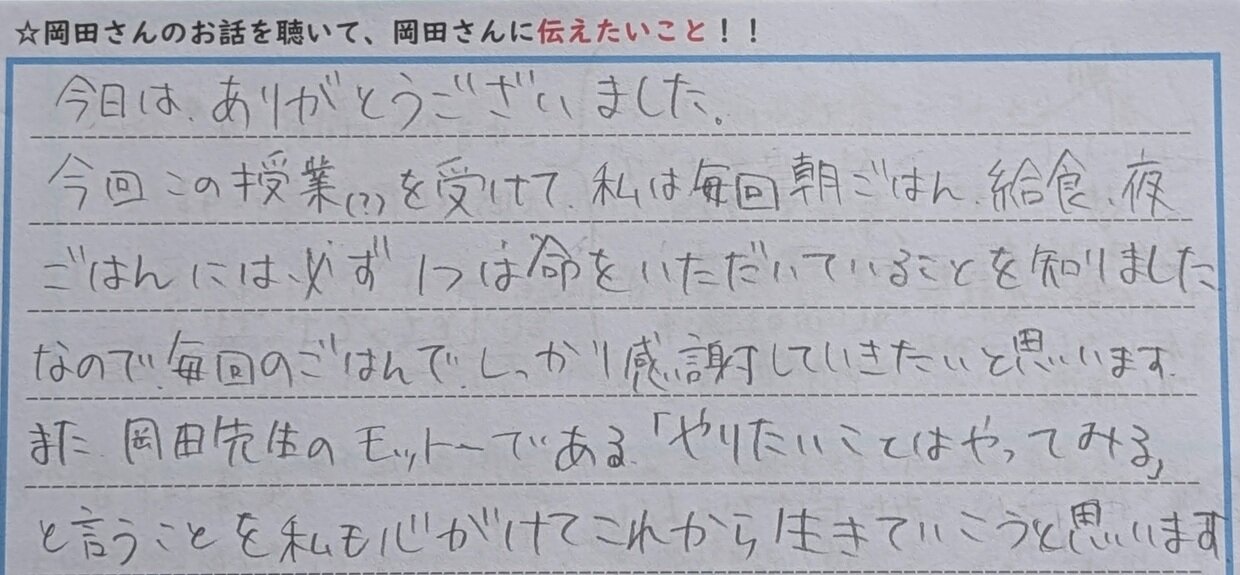 ☆岡田さんのお話を聴いて、岡田さんに伝えたいこと！！
今日は、ありがとうございました。
今回この授業(?)を受けて、私は毎回朝ごはん、給食、夜
ごはんには、必ず1つは命をいただいていることを知りました
なので、毎回のごはんで、しっかり感謝していきたいと思います。
また、岡田先生のモットーである、「やりたいことはやってみる」
と言うことを私も心がけてこれから生きていこうと思います